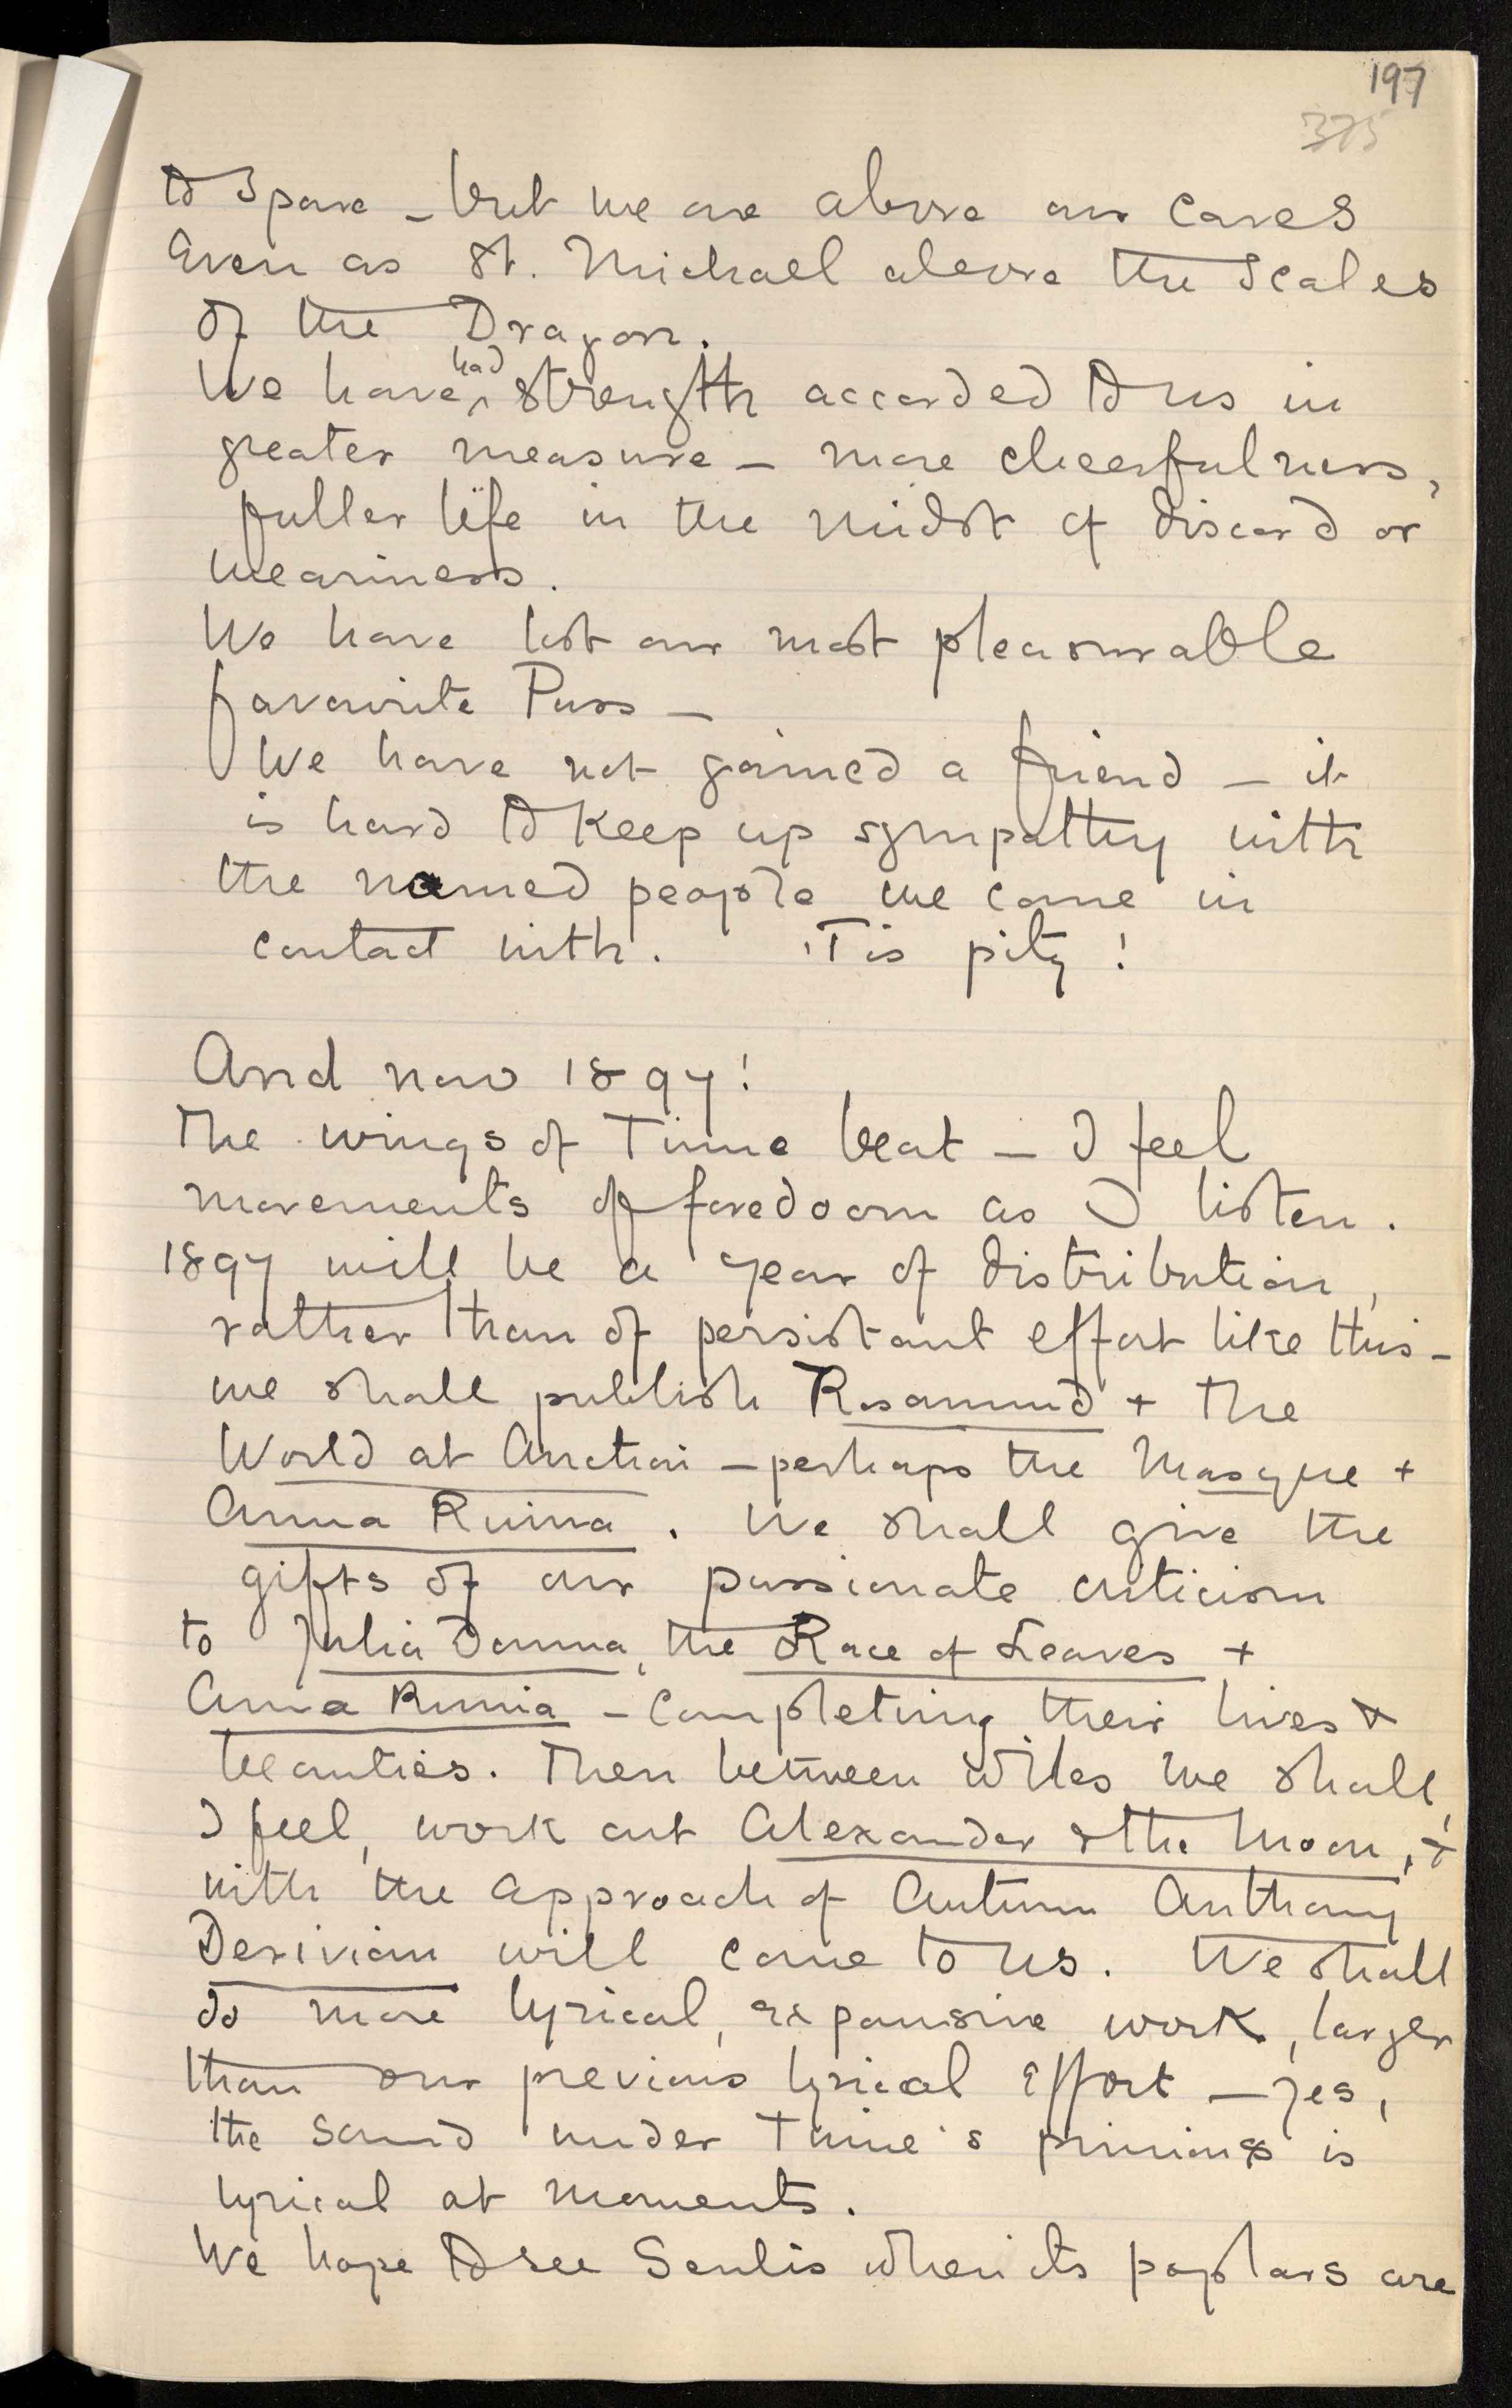 197
375
to spare – but we are above our cares
even as St. Michael above the Scales
of the Dragon.
We have had strength accorded to us in
greater measure – more cheerfulness,
fuller life in the midst of discord or
weariness.
We have lost our most pleasurable
favourite Puss –
We have not gained a friend – it
is hard to keep up sympathy with
the named people we come in
contact with. 'Tis pity!
And now 1897!
The wings of Time beat – I feel
movements of foredoom as I listen.
1897 will be a year of distribution,
rather than of persistant effort like this –
we shall publish Rosamund + the
World at Auction – perhaps the Masque +
Anna Ruina. We shall give the
gifts of our passionate criticism
to Julia Domna, the Race of Leaves +
Anna Ruina – completing their lives &
beauties. Then between whiles we shall,
I feel, work out Alexander & the Moon, +
with the approach of Autumn Anthony
Derivian will come to us. We shall
do more lyrical, expansive work, larger
than our previous lyrical effort – yes,
the sound under Time's pinions is
lyrical at moments.
We hope to see Senlis when its poplars are